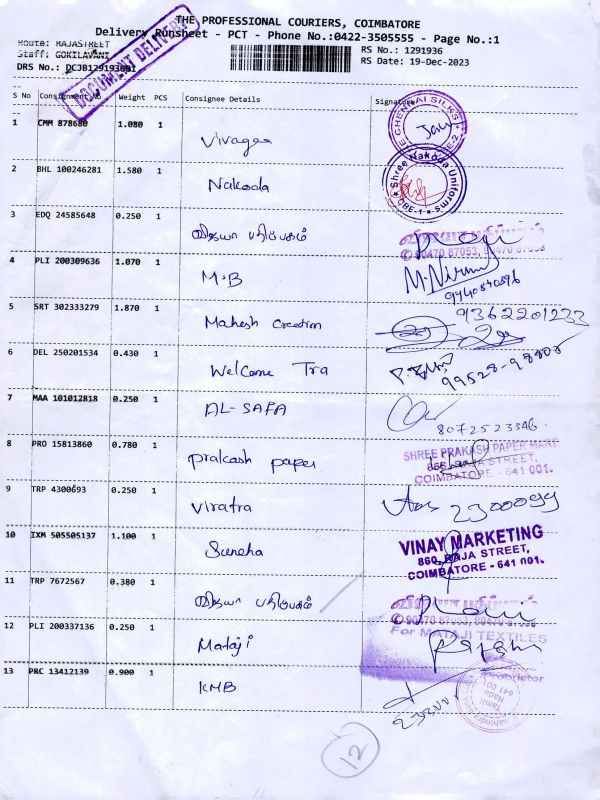 THE PROFESSIONAL COURIERS, COIMBATORE
Delivery Runsheet - PCT - Phone No.:0422-3505555 - Page No.:1
Route: RAJASTREET
RS No.: 1291936
Staff: GOKILAVANI
RS Date: 19-Dec-2023
DRS No.:
DOCUMENT DELIVERY
S No Consignment No Weight PCS Consignee Details Signature
1 CMM 878680 1.080 1 Vivagaa
E CHENNAI SILKS
2 BHL 100246281 1.580 1 Nakoda
Shree Nakoda Uniforms
CBE-1
3 EDQ 24585648 0.250 1 விஜயா பதிப்பகம்
90470 87053, 90470 87058
4 PLI 200309636 1.070 1 M.B
5 SRT 302333279 1.870 1 Mahesh Creation 9362201233
6 DEL 250201534 0.430 1 Welcome Tra
7 MAA 101012818 0.250 1 AL-SAFA
8072523546
8 PRO 15813860 0.780 1 prakash paper
SHREE PRAKASH PAPER MART
RAJA STREET,
COIMBATORE - 641 001.
9 TRP 4300693 0.250 1 Viratra 2300099
10 IXM 505505137 1.100 1 Suneha
VINAY MARKETING
860, RAJA STREET,
COIMBATORE - 641 001.
11 TRP 7672567 0.380 1 விஜயா பதிப்பகம்
12 PLI 200337136 0.250 1 Mataji
For MATAJI TEXTILES
Proprietor
13 PRC 13412139 0.900 1 KMB
Tamil
Nadu
641 001
12